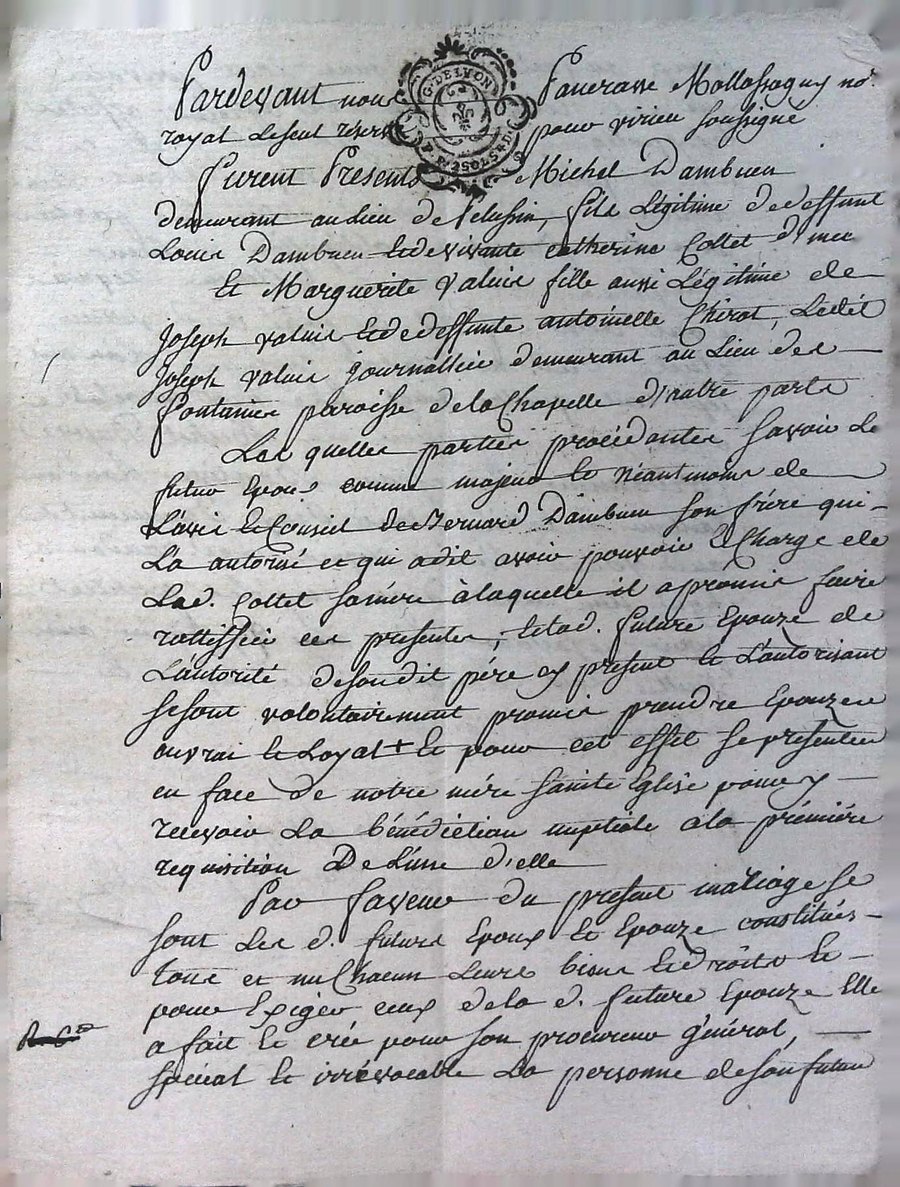 Pardevant nous Pancrasse Mollossaguy no.re
royal le seul réservé pour virieu soussigné
G. DE LYON
furent Presents Michel Dambuen
demeurant au Lieu de Pelussin, fils Légitime de deffunt
Louis Dambuen et de vivante Catherine Collet d'une
Et Marguerite Valuis fille aussi Légitime de
Joseph Valuis et de deffunte antoinelle Chirat, Ledit
Joseph Valuis journallier demeurant au Lieu des
fontaines paroisse de la Chapelle d'autre parts
Les quelles parties procédantes savoir le
futur Epoux comme majeur et néantmoins de
L'avis et Conseil de Bernard Dambuen son frére qui
L'a autorisé et qui a dit avoir pouvoir et Charge de
Lad. Collet sa mére à laquelle il a promis faire
rattiffier ces presentes, et lad. future Epouze de
L'autorité de son dit pére cy present et L'autorisant
se sont volontairement promis prendre Epouzer
au vrai et Loyal + et pour cet effet se presenter
en face de notre mére Sainte Eglise pour y
recevoir La bénédiction nuptiale à la prémiére
requisition De L'une d'elle
Par faveur du present mariage se
sont Les d. futurs Epoux et Epouze constitués
tous et un Chacun Leurs biens et droits et
pour Exiger ceux de la d. future Epouze Elle
a fait et créé pour son procureur général,
spécial et irrévocable La personne de son futur